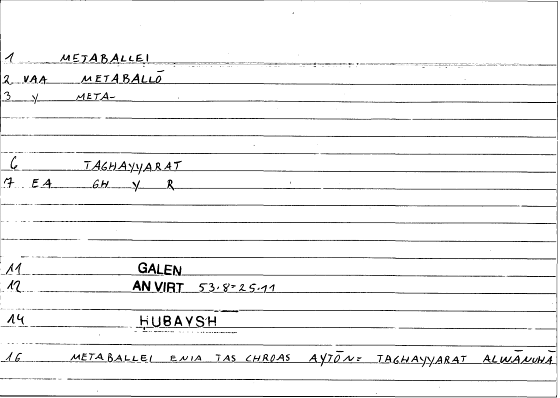 1 METABALLEI
2 VAA METABALLŌ
3 Y META-
6 TAGHAYYARAT
7 EA GH Y R
11 GALEN
12 AN VIRT 53.8=25.11
14 ḤUBAYSH
16 METABALLEI ENIA TAS CHROAS AYTŌN= TAGHAYYARAT ALWĀNUHĀ